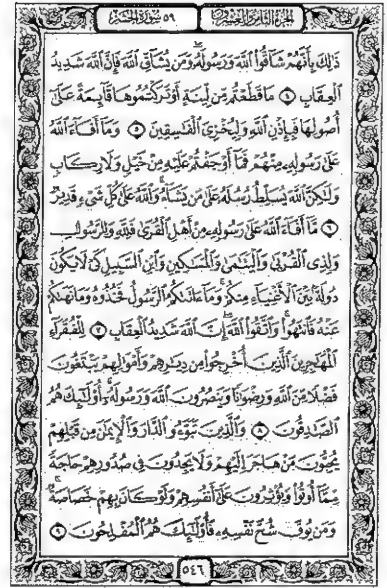 الجُزْءُ الثَّامِنُ وَالعِشْرُونَ
٥٩ سُورَةُ الحَشْرِ
ذَٰلِكَ بِأَنَّهُمْ شَآقُّوا۟ ٱللَّهَ وَرَسُولَهُۥ ۖ وَمَن يُشَآقِّ ٱللَّهَ فَإِنَّ ٱللَّهَ شَدِيدُ
ٱلْعِقَابِ ٤ مَا قَطَعْتُم مِّن لِّينَةٍ أَوْ تَرَكْتُمُوهَا قَآئِمَةً عَلَىٰٓ
أُصُولِهَا فَبِإِذْنِ ٱللَّهِ وَلِيُخْزِىَ ٱلْفَٰسِقِينَ ٥ وَمَآ أَفَآءَ ٱللَّهُ
عَلَىٰ رَسُولِهِۦ مِنْهُمْ فَمَآ أَوْجَفْتُمْ عَلَيْهِ مِنْ خَيْلٍ وَلَا رِكَابٍ
وَلَٰكِنَّ ٱللَّهَ يُسَلِّطُ رُسُلَهُۥ عَلَىٰ مَن يَشَآءُ ۚ وَٱللَّهُ عَلَىٰ كُلِّ شَىْءٍ قَدِيرٌ
٦ مَّآ أَفَآءَ ٱللَّهُ عَلَىٰ رَسُولِهِۦ مِنْ أَهْلِ ٱلْقُرَىٰ فَلِلَّهِ وَلِلرَّسُولِ
وَلِذِى ٱلْقُرْبَىٰ وَٱلْيَتَٰمَىٰ وَٱلْمَسَٰكِينِ وَٱبْنِ ٱلسَّبِيلِ كَىْ لَا يَكُونَ
دُولَةًۢ بَيْنَ ٱلْأَغْنِيَآءِ مِنكُمْ ۚ وَمَآ ءَاتَىٰكُمُ ٱلرَّسُولُ فَخُذُوهُ وَمَا نَهَىٰكُمْ
عَنْهُ فَٱنتَهُوا۟ ۚ وَٱتَّقُوا۟ ٱللَّهَ ۖ إِنَّ ٱللَّهَ شَدِيدُ ٱلْعِقَابِ ٧ لِلْفُقَرَآءِ
ٱلْمُهَٰجِرِينَ ٱلَّذِينَ أُخْرِجُوا۟ مِن دِيَٰرِهِمْ وَأَمْوَٰلِهِمْ يَبْتَغُونَ
فَضْلًا مِّنَ ٱللَّهِ وَرِضْوَٰنًا وَيَنصُرُونَ ٱللَّهَ وَرَسُولَهُۥٓ ۚ أُو۟لَٰٓئِكَ هُمُ
ٱلصَّٰدِقُونَ ٨ وَٱلَّذِينَ تَبَوَّءُو ٱلدَّارَ وَٱلْإِيمَٰنَ مِن قَبْلِهِمْ
يُحِبُّونَ مَنْ هَاجَرَ إِلَيْهِمْ وَلَا يَجِدُونَ فِى صُدُورِهِمْ حَاجَةً
مِّمَّآ أُوتُوا۟ وَيُؤْثِرُونَ عَلَىٰٓ أَنفُسِهِمْ وَلَوْ كَانَ بِهِمْ خَصَاصَةٌ ۚ
وَمَن يُوقَ شُحَّ نَفْسِهِۦ فَأُو۟لَٰٓئِكَ هُمُ ٱلْمُفْلِحُونَ ٩
٥٤٦